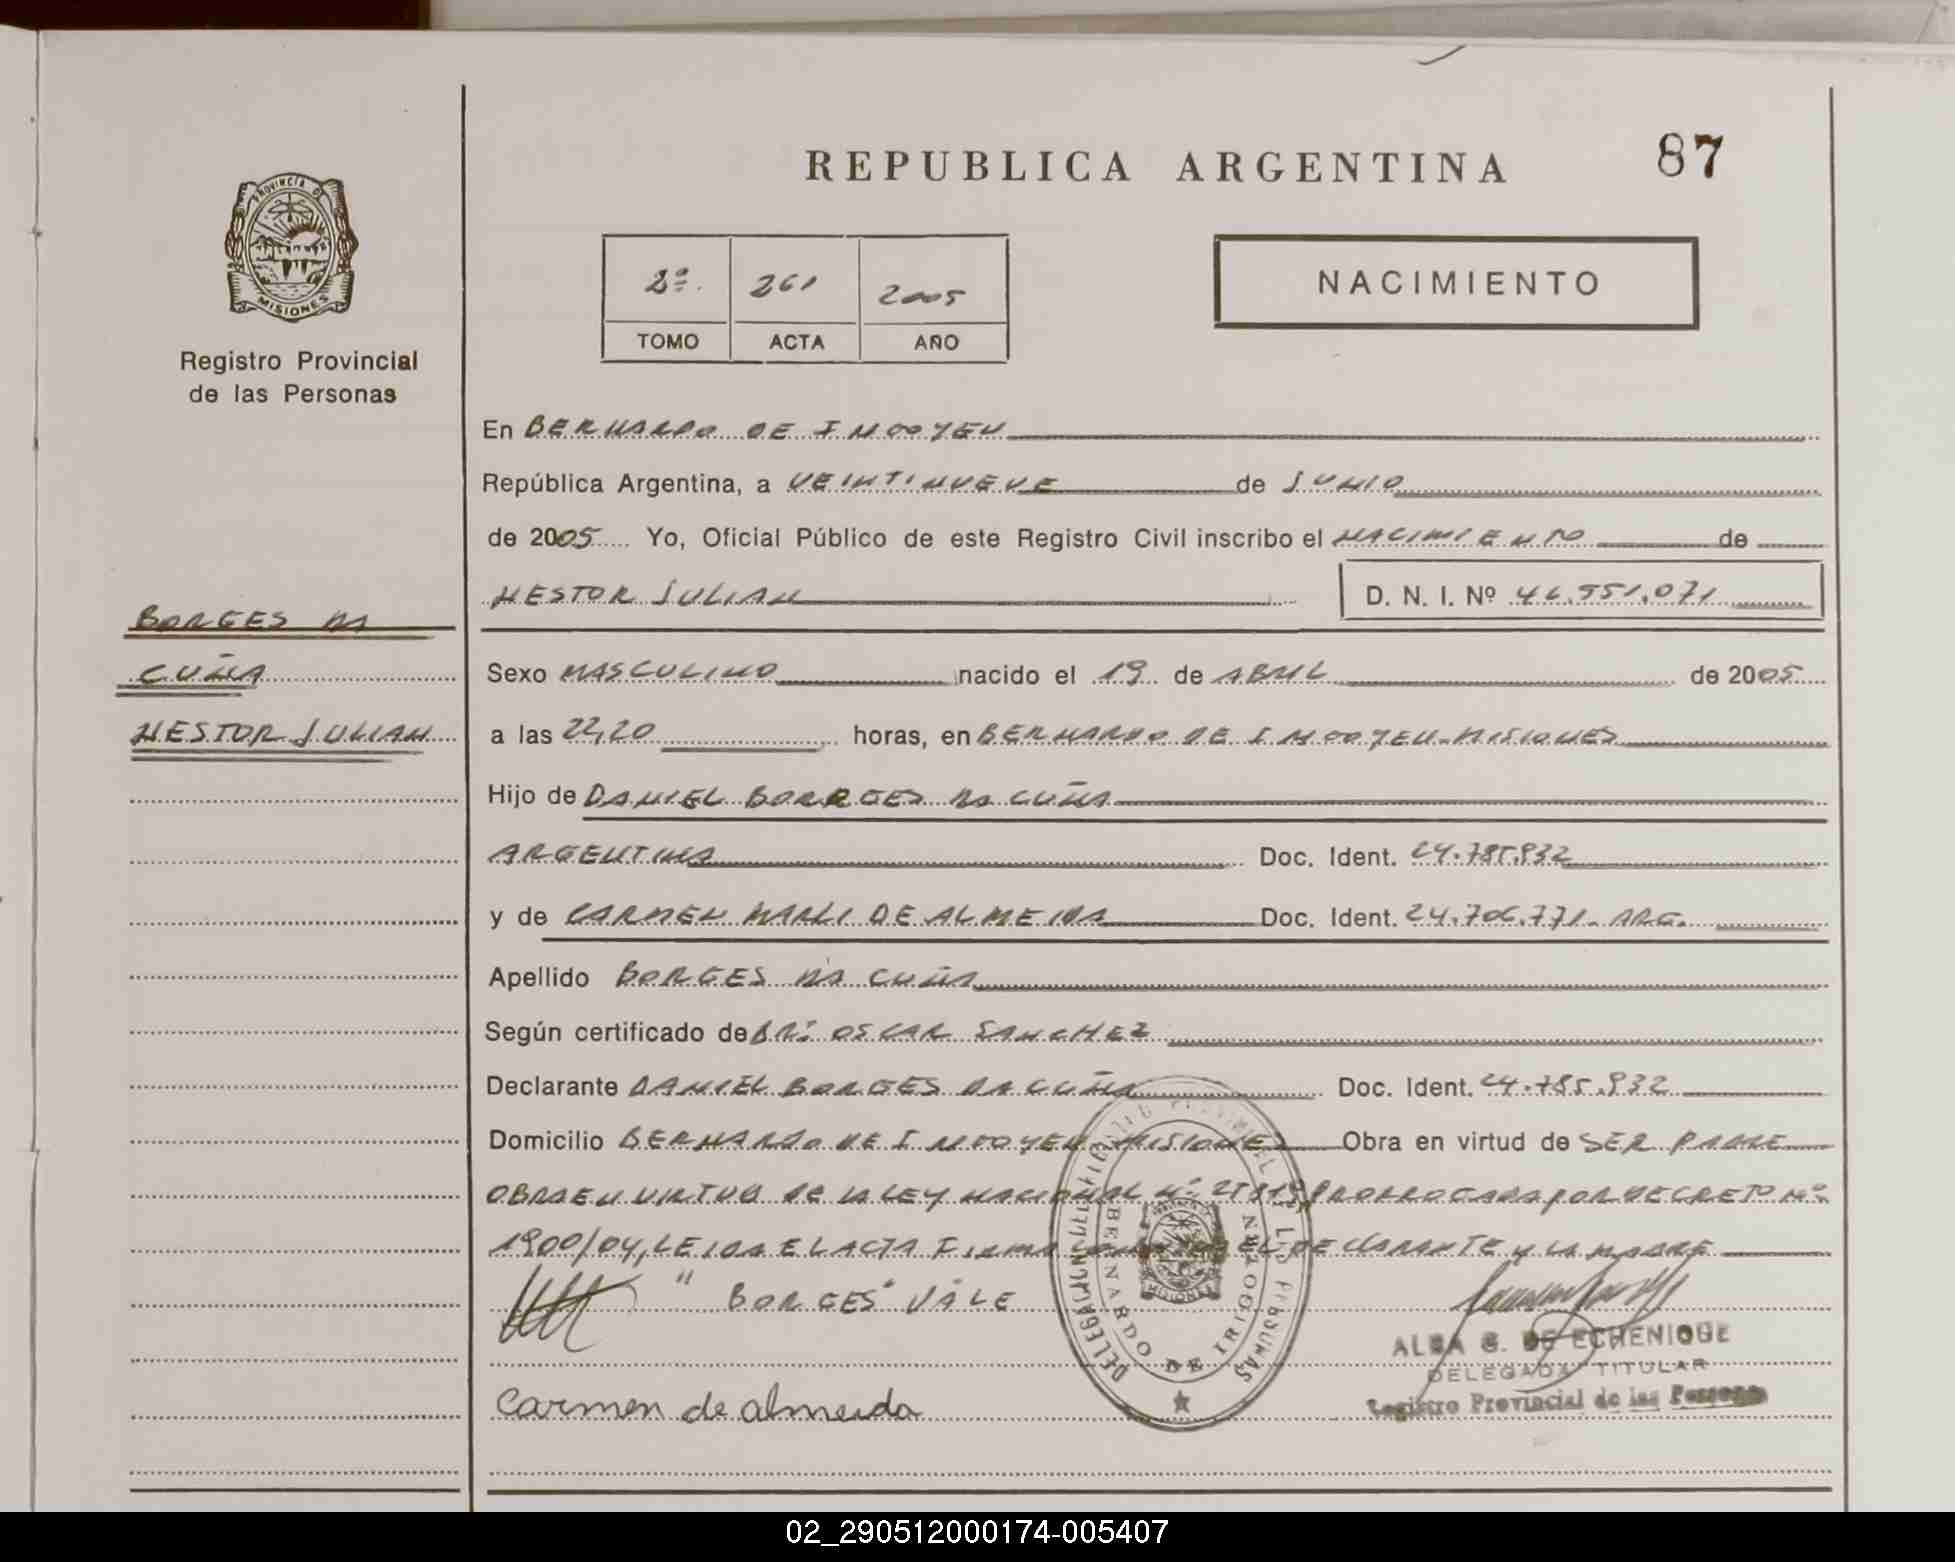 REPUBLICA ARGENTINA
87
PROVINCIA DE
MISIONES
Registro Provincial
de las Personas
2º. 261 2005
TOMO ACTA AÑO
NACIMIENTO
En BERNARDO DE IRIGOYEN
República Argentina, a VEINTINUEVE de JUNIO
de 2005 Yo, Oficial Público de este Registro Civil inscribo el NACIMIENTO de
NESTOR JULIAN D. N. I. Nº 46.551.071
BORGES DA
CUÑA
NESTOR JULIAN
Sexo MASCULINO nacido el 19 de ABRIL de 2005
a las 22,20 horas, en BERNARDO DE IRIGOYEN-MISIONES
Hijo de DANIEL BORGES DA CUÑA
ARGENTINA Doc. Ident. 24.785.932
y de CARMEN MARLI DE ALMEIDA Doc. Ident. 24.706.771- ARG.
Apellido BORGES DA CUÑA
Según certificado de DR. OSCAR SANCHEZ
Declarante DANIEL BORGES DA CUÑA Doc. Ident. 24.785.932
Domicilio BERNARDO DE IRIGOYEN MISIONES Obra en virtud de SER PADRE
OBRA EN VIRTUD DE LA LEY NACIONAL Nº PRORROGADA POR DECRETO Nº
1900/04, LEIDA EL ACTA FIRMA EL DECLARANTE Y LA MADRE
"BORGES" VALE
ALBA G. DE ECHENIQUE
DELEGADA TITULAR
Registro Provincial de las Personas
Carmen de almeida
BERNARDO DE IRIGOYEN
MISIONES
02_290512000174-005407